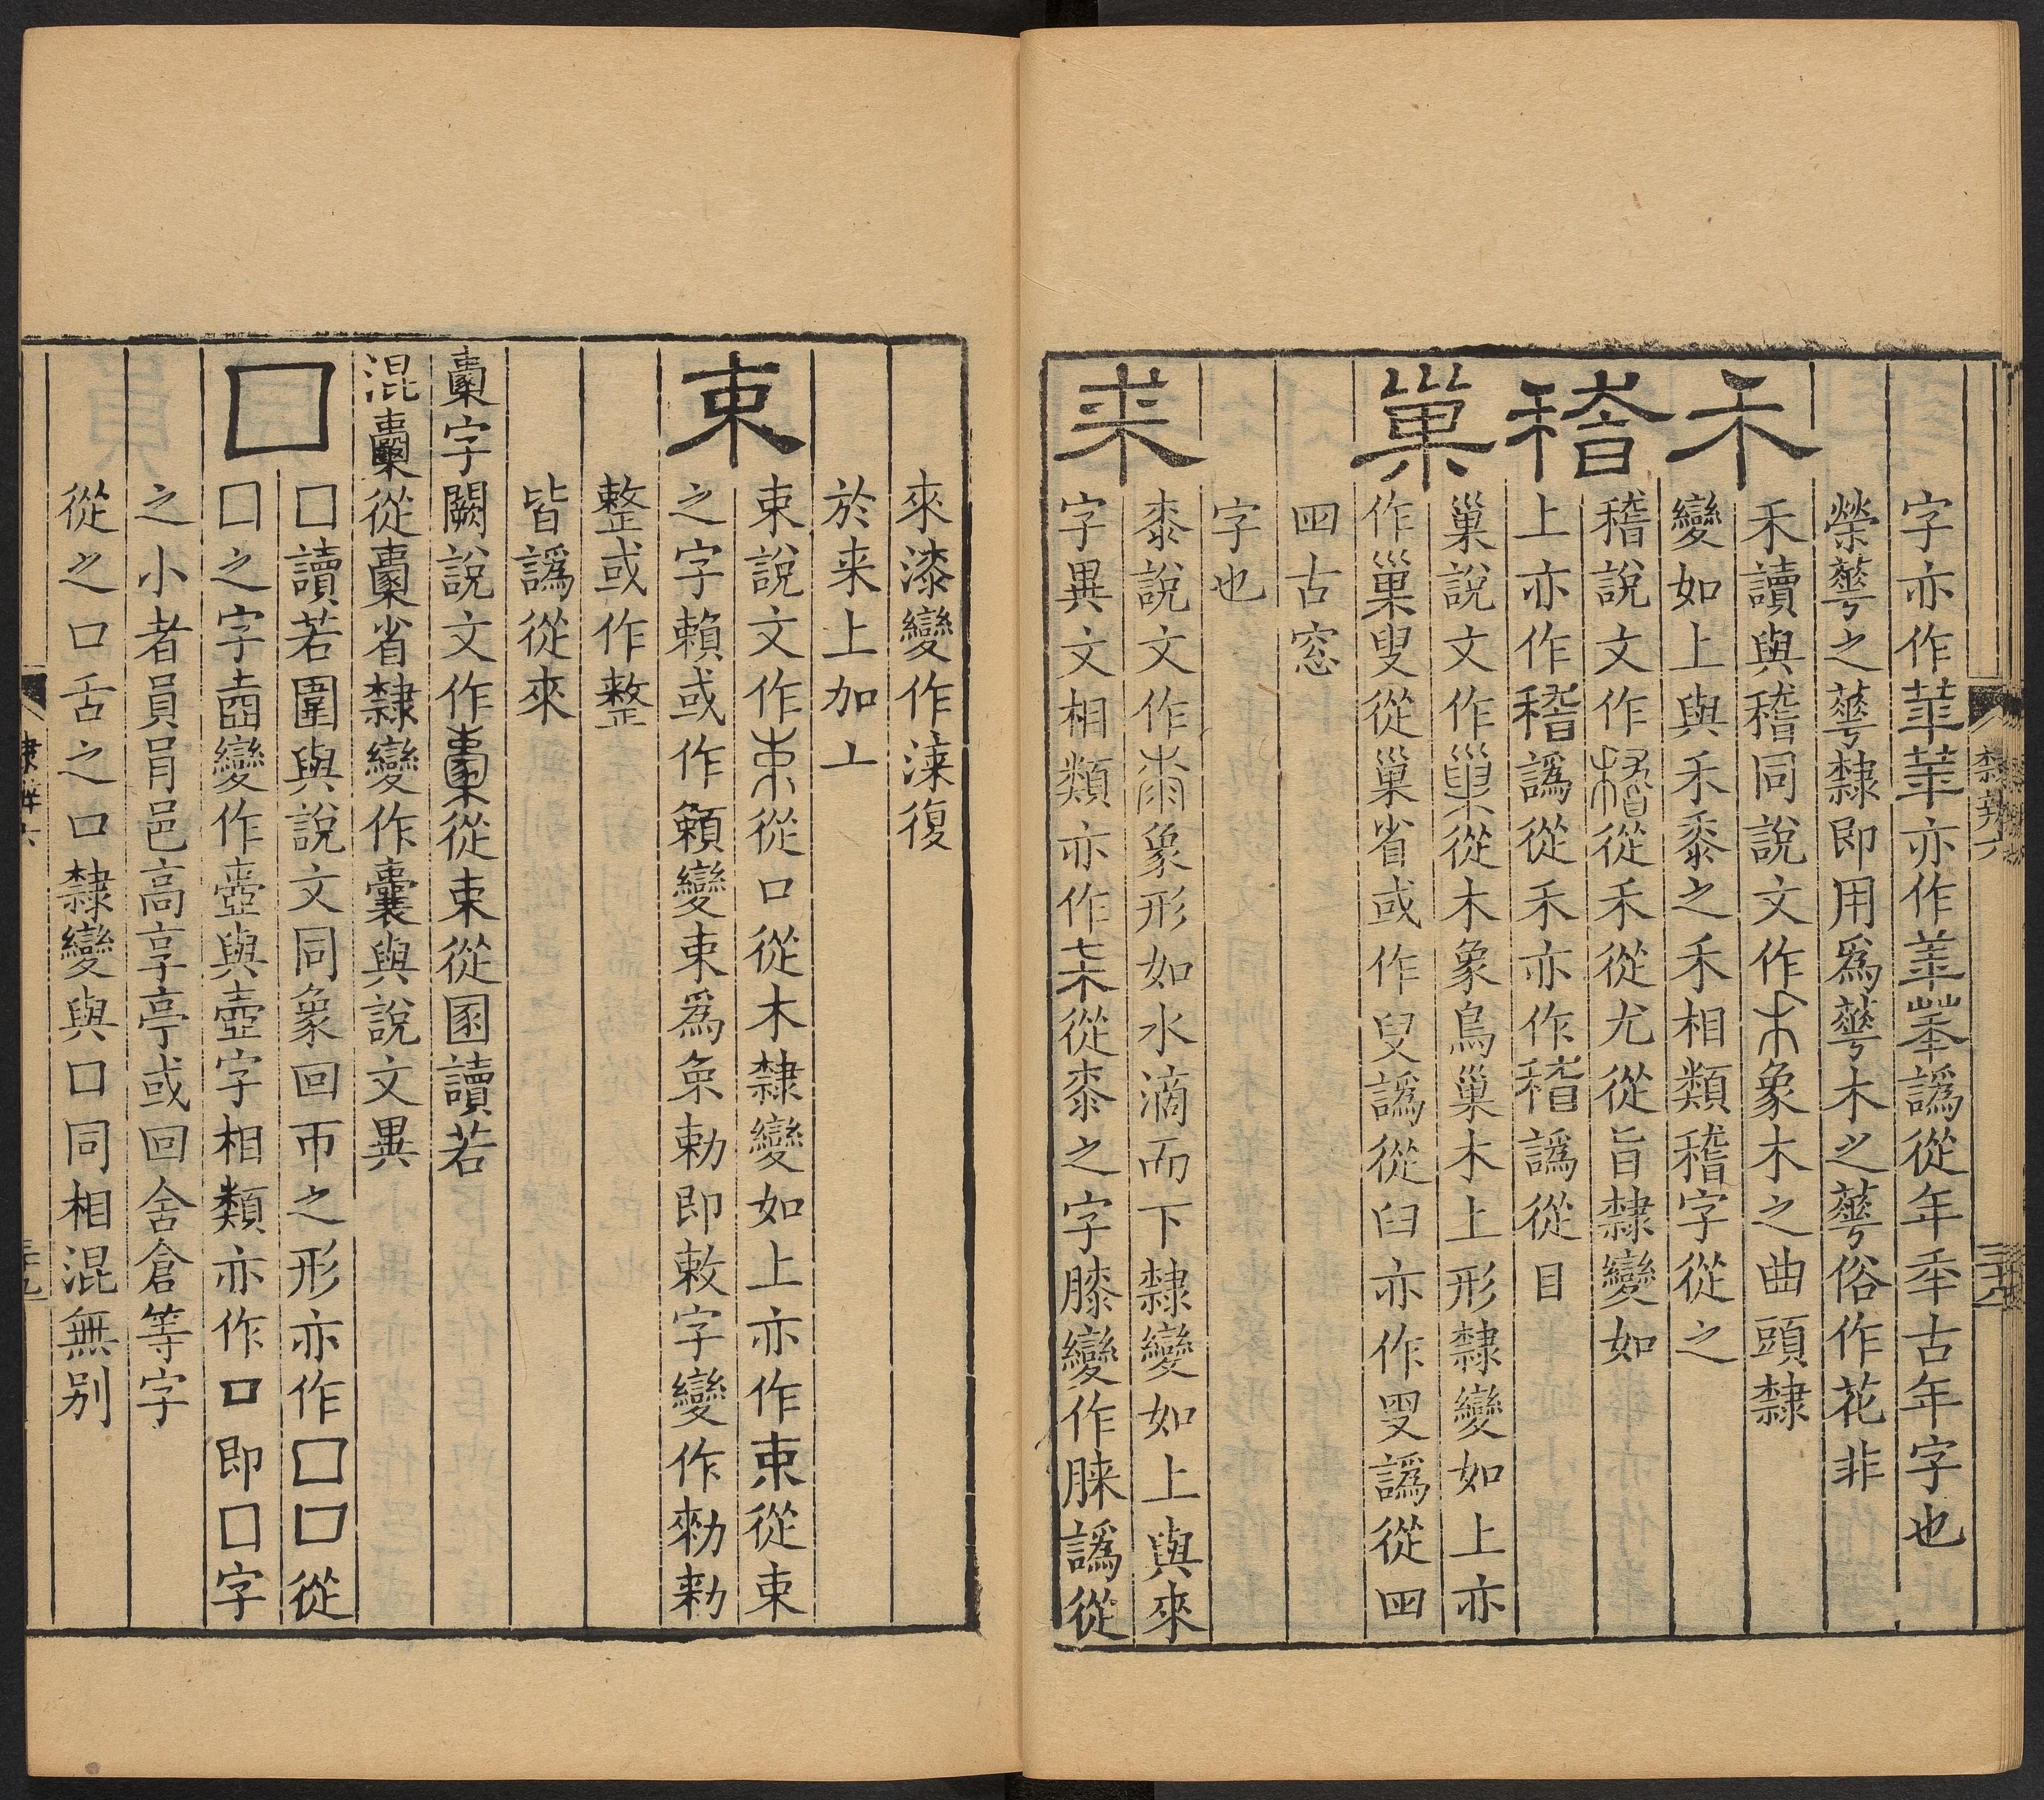 字亦作華華亦作𦻏崋譌從年秊古年字也
榮蕚之蕚隸即用爲蕚木之蕚俗作花非
禾
禾讀與稽同說文作禾象木之曲頭隸
變如上與禾黍之禾相類稽字從之
稽
稽說文作稽從禾從尤從旨隸變如
上亦作稽譌從禾亦作稽譌從目
巢
巢說文作巢從木象鳥巢木上形隸變如上亦
作巢㕜從巢省或作㕜譌從臼亦作㕜譌從罒
罒古窓
字也
桼
桼說文作桼象形如水滴而下隸變如上與來
字異文相類亦作桼從桼之字膝變作脨譌從
來漆變作淶復
於来上加丄
束
束說文作束從口從木隸變如上亦作朿從束
之字賴或作頼變束爲㲋勅即敕字變作勑勑
整或作整
皆譌從來
㯻字闕說文作㯻從束從圂讀若
混橐從㯻省隸變作囊與說文異
囗
囗讀若圍與說文同象回帀之形亦作囗囗從
囗之字壺變作壺與壺字相類亦作口即囗字
之小者員肙邑高享亭或回舍倉等字
從之口舌之口隸變與囗同相混無别
隸辨六